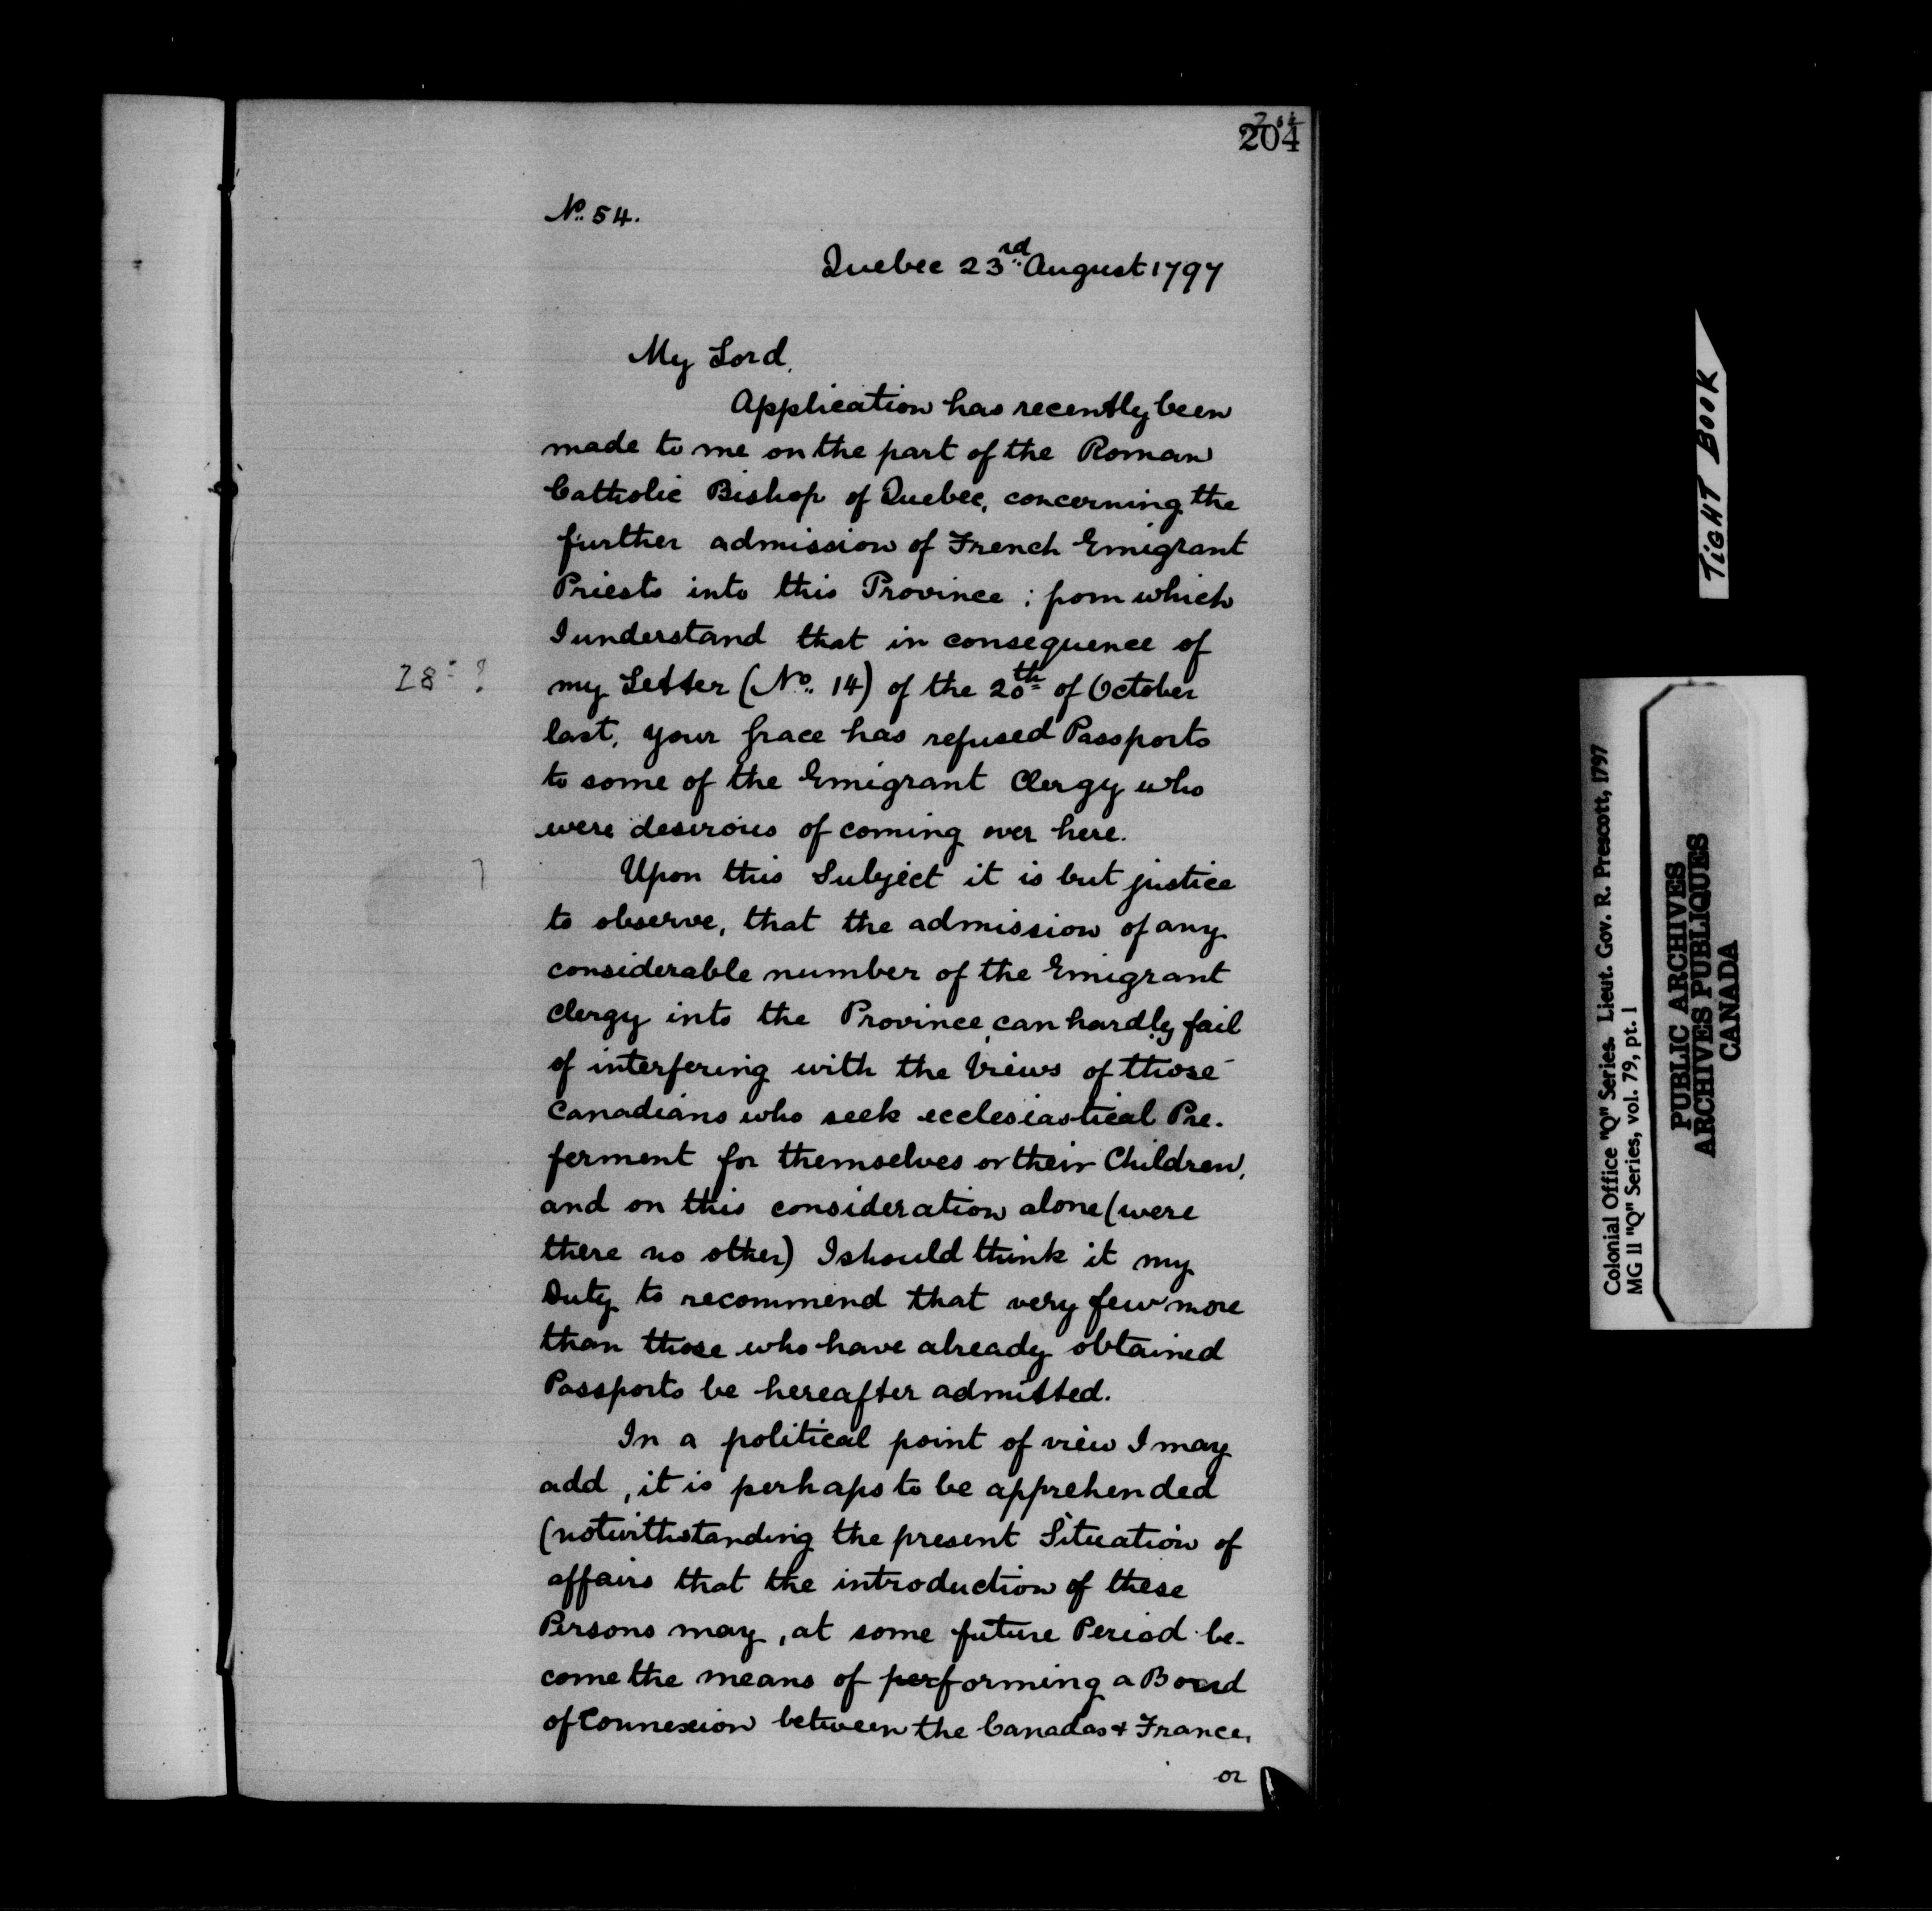 204
No. 54.
Quebec 23rd August 1797
My Lord,
Application has recently been
made to me on the part of the Roman
Catholic Bishop of Quebec, concerning the
further admission of French Emigrant
Priests into this Province ; from which
I understand that in consequence of
28 ?
my Letter (No. 14) of the 20th of October
last, your Grace has refused Passports
to some of the Emigrant Clergy who
were desirous of coming over here.
Upon this Subject it is but justice
to observe, that the admission of any
considerable number of the Emigrant
Clergy into the Province, can hardly fail
of interfering with the Views of those
Canadians who seek ecclesiastical Pre-
ferment for themselves or their Children,
and on this consideration alone (were
there no other) I should think it my
Duty to recommend that very few more
than those who have already obtained
Passports be hereafter admitted.
In a political point of view I may
add, it is perhaps to be apprehended
(notwithstanding the present Situation of
affairs that the introduction of these
Persons may, at some future Period be-
come the means of performing a Bond
of Connexion between the Canadas & France,
or
TIGHT BOOK
Colonial Office "Q" Series. Lieut. Gov. R. Prescott, 1797
MG 11 "Q" Series, vol. 79, pt. 1
PUBLIC ARCHIVES
ARCHIVES PUBLIQUES
CANADA